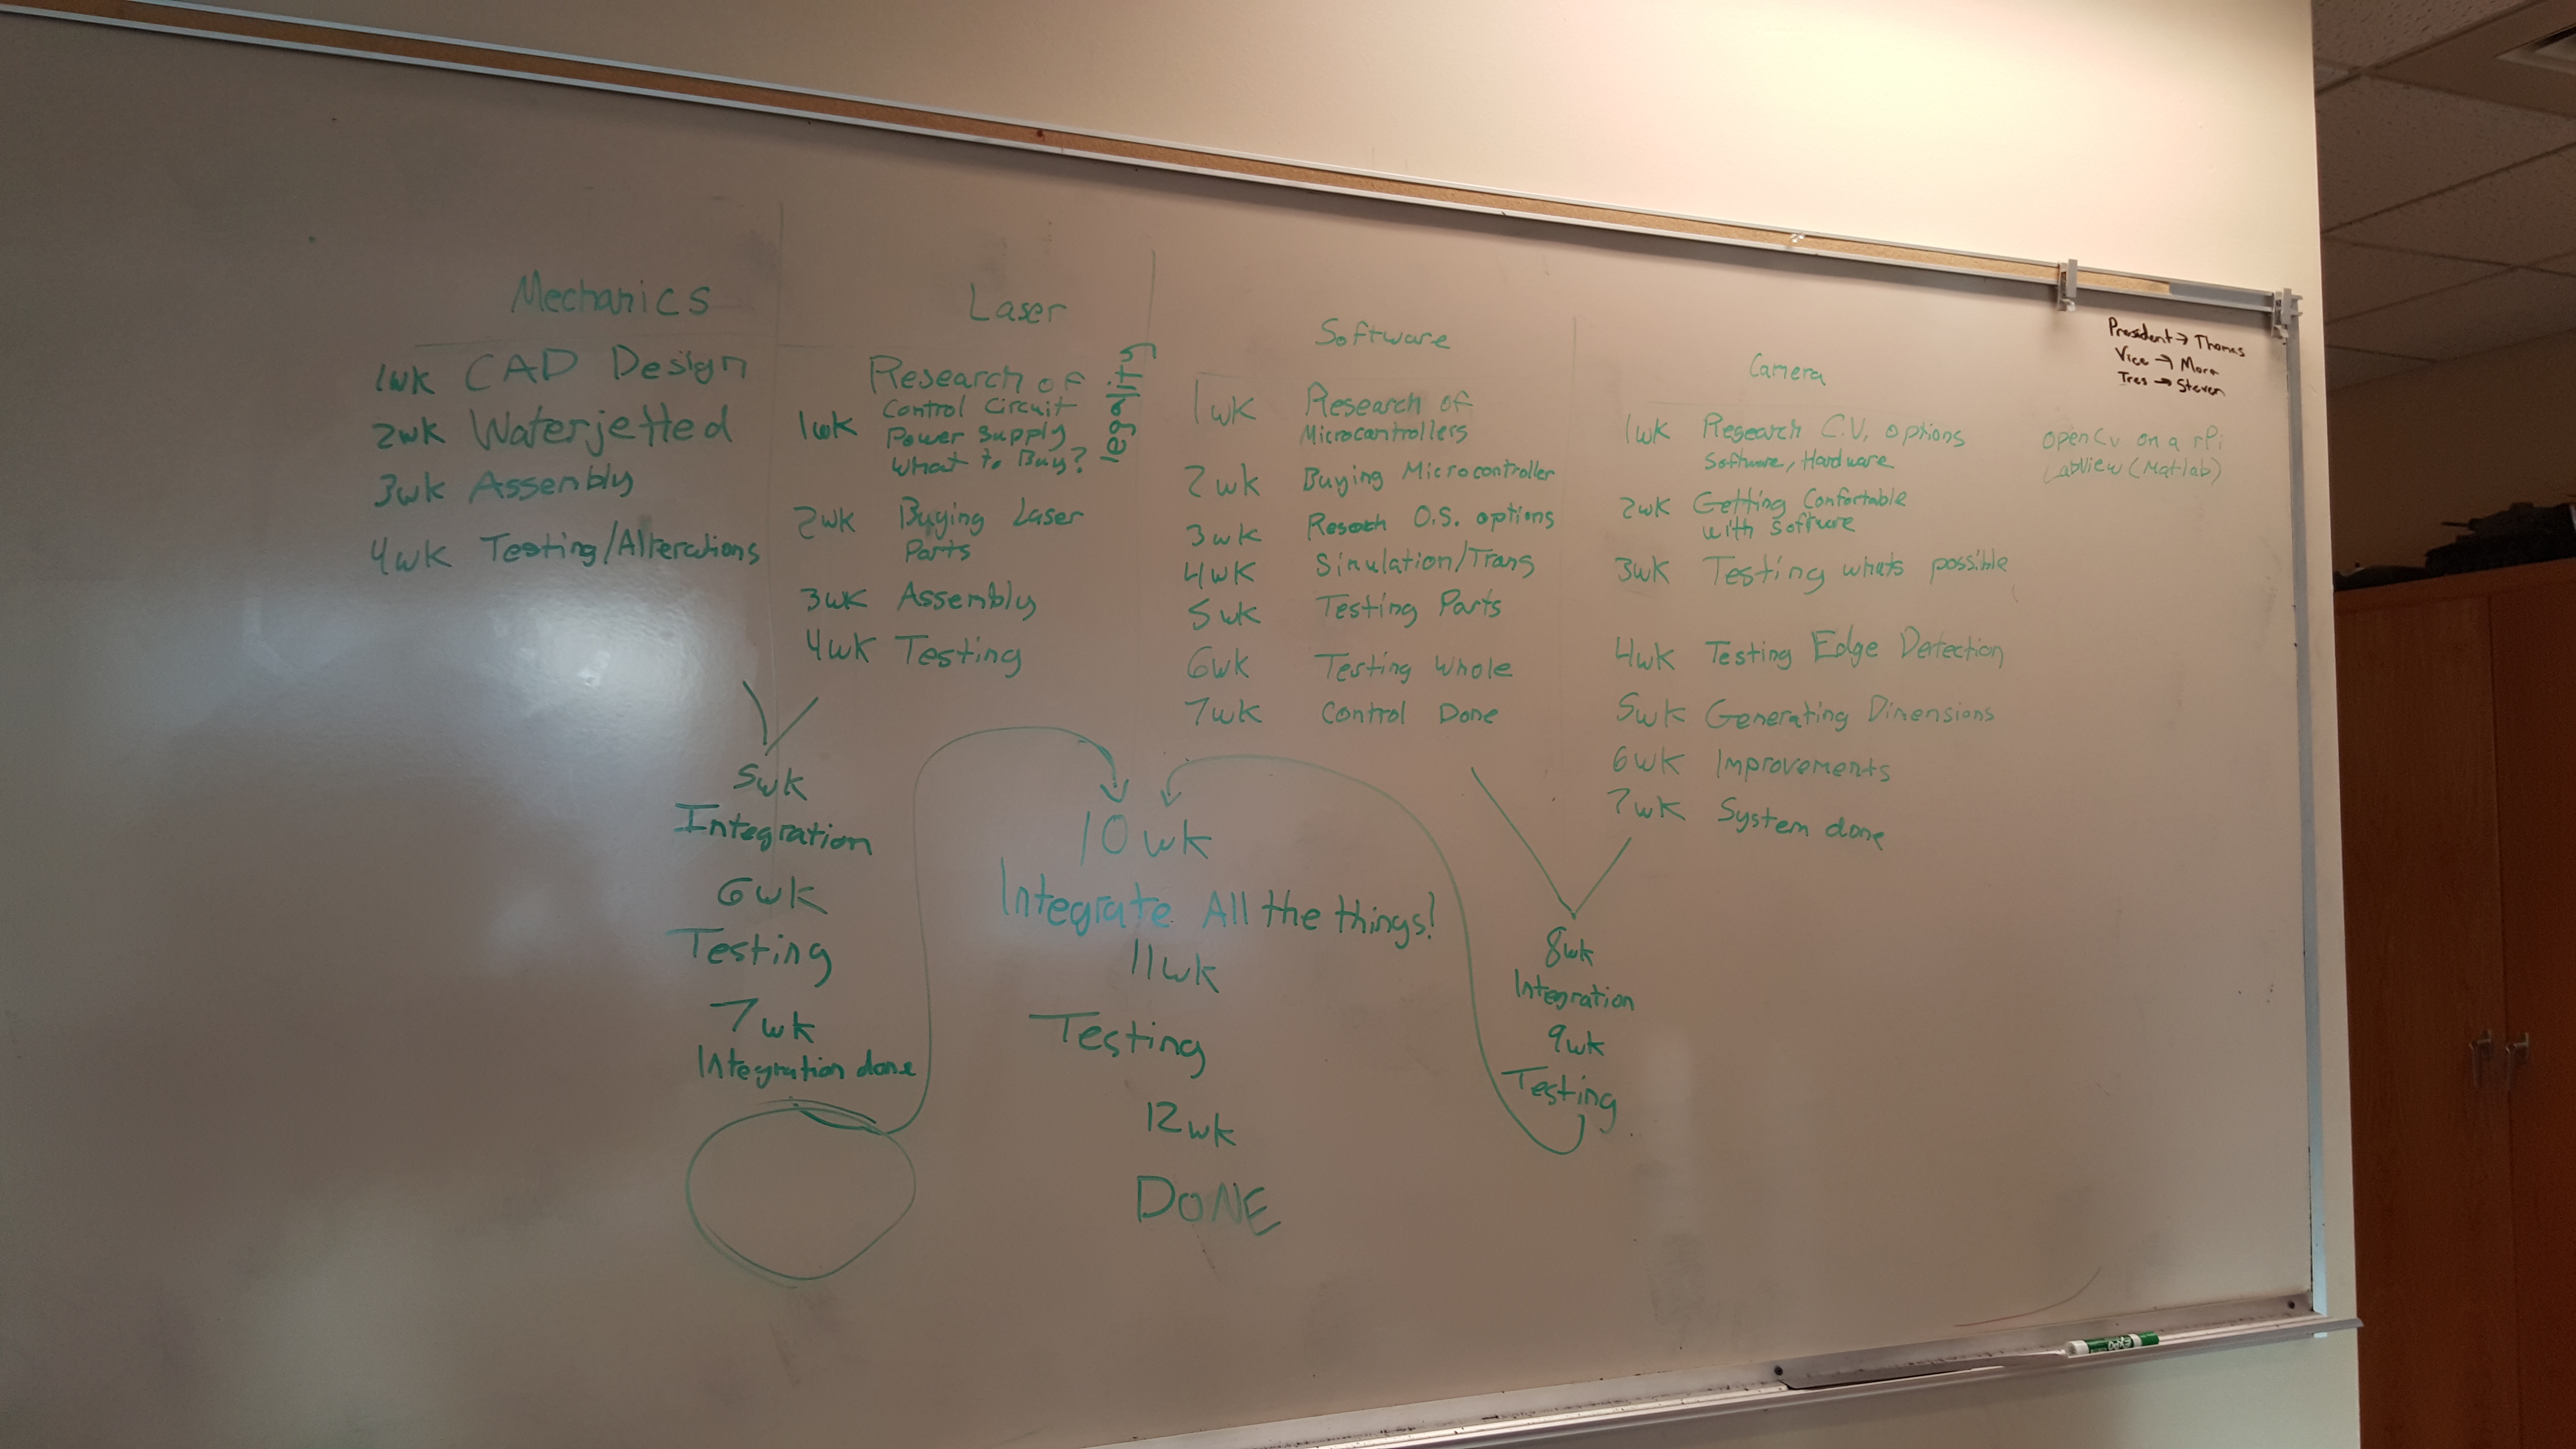 Mechanics
1wk CAD Design
2wk Waterjetted
3wk Assembly
4wk Testing/Alterations
Laser
Research of
Control Circuit
1wk Power Supply
What to Buy?
legality
2wk Buying Laser
Parts
3wk Assembly
4wk Testing
5wk
Integration
6wk
Testing
7wk
Integration done
Software
1wk Research of
Microcontrollers
2wk Buying Microcontroller
3wk O.S. options
4wk Simulation/Trans
5wk Testing Parts
6wk Testing Whole
7wk Control Done
Camera
1wk Research C.V. options
Software, Hardware
2wk Getting Confortable
with software
3wk Testing whats possible
4wk Testing Edge Detection
5wk Generating Dimensions
6wk Improvements
7wk System done
OpenCv on a rPi
LabView (Matlab)
8wk
Integration
9wk
Testing
10wk
Integrate All the things!
11wk
Testing
12wk
DONE
President → Thomas
Vice →
Tres → Steven